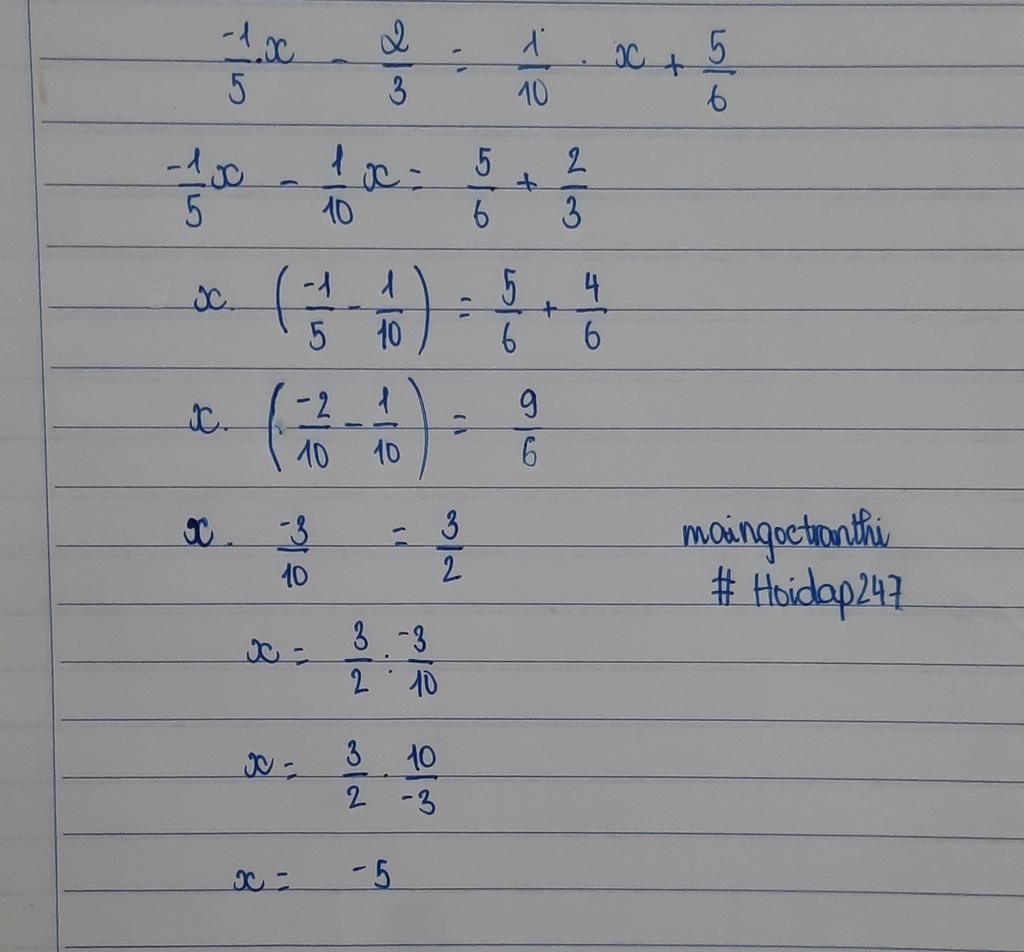 -1/5 . x - 2/3 = 1/10 . x + 5/6
-1/5 x - 1/10 x = 5/6 + 2/3
x. (-1/5 - 1/10) = 5/6 + 4/6
x. (-2/10 - 1/10) = 9/6
x. -3/10 = 3/2
maingoctranthi
# Hoidap247
x = 3/2 : -3/10
x = 3/2 . 10/-3
x = -5